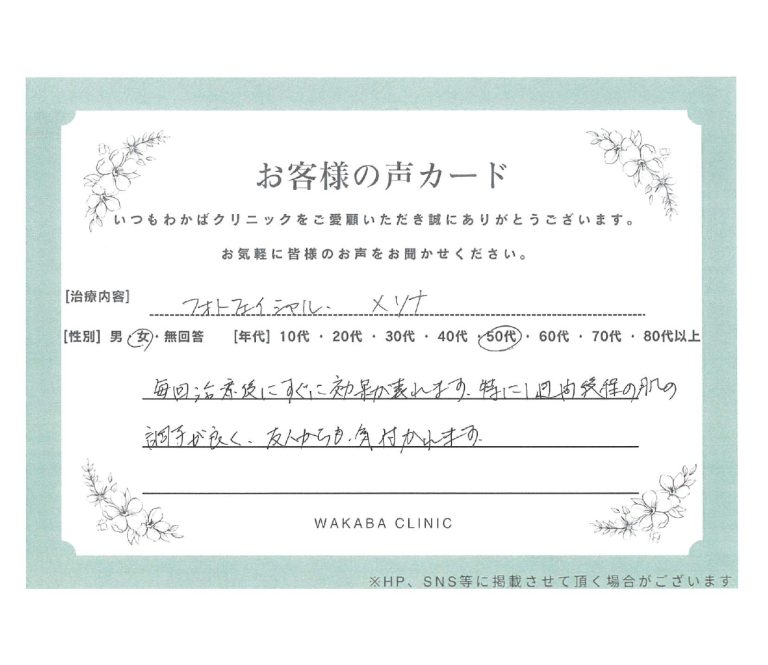 お客様の声カード
いつもわかばクリニックをご愛顧いただき誠にありがとうございます。
お気軽に皆様のお声をお聞かせください。
[治療内容] フォトフェイシャル・ メソナ
[性別] 男・女・無回答 [年代] 10代・20代・30代・40代・50代・60代・70代・80代以上
毎回治療後にすぐに効果が表れます。特に1週間後程の肌の
調子が良く、友人からも気付かれます。
WAKABA CLINIC
※HP、SNS等に掲載させて頂く場合がございます